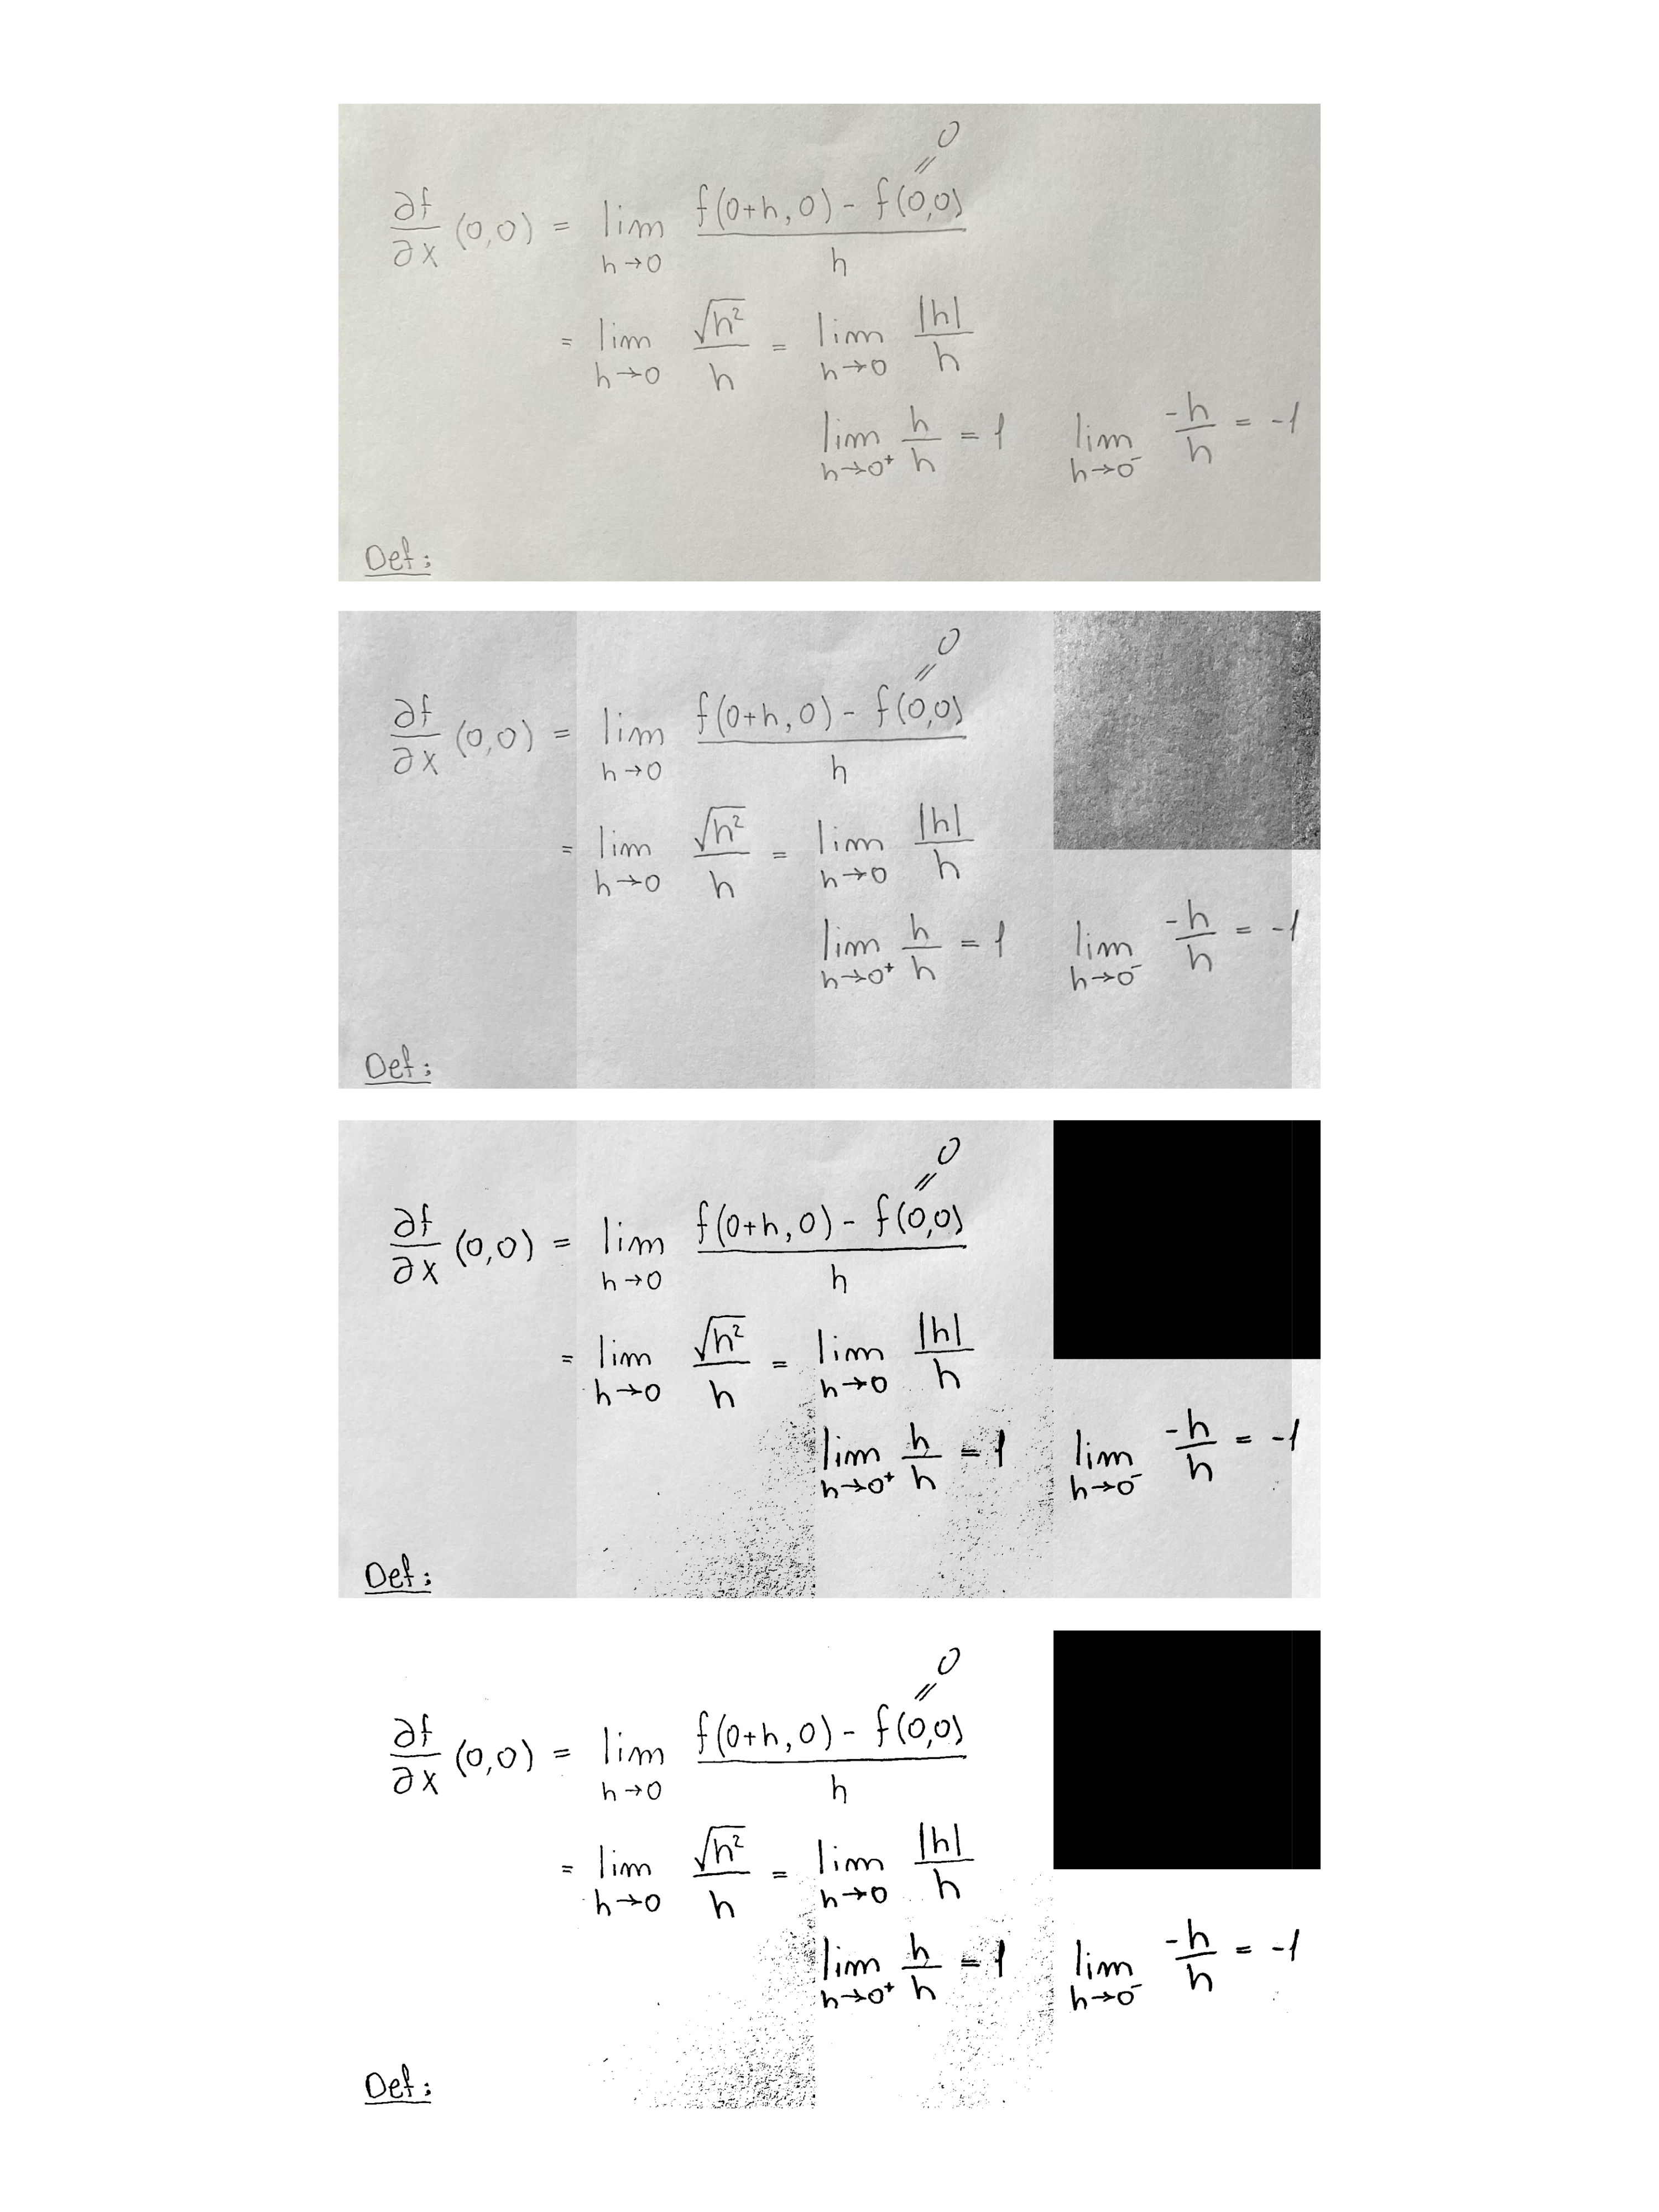 0
∂f/∂x (0,0) = lim h→0 f(0+h, 0) - f(0,0) / h
= lim h→0 √h² / h = lim h→0 |h| / h
lim h→0⁺ h/h = 1 lim h→0⁻ -h/h = -1
Def:
0
∂f/∂x (0,0) = lim h→0 f(0+h, 0) - f(0,0) / h
= lim h→0 √h² / h = lim h→0 |h| / h
lim h→0⁺ h/h = 1 lim h→0⁻ -h/h = -1
Def:
0
∂f/∂x (0,0) = lim h→0 f(0+h, 0) - f(0,0) / h
= lim h→0 √h² / h = lim h→0 |h| / h
lim h→0⁺ h/h = 1 lim h→0⁻ -h/h = -1
Def:
0
∂f/∂x (0,0) = lim h→0 f(0+h, 0) - f(0,0) / h
= lim h→0 √h² / h = lim h→0 |h| / h
lim h→0⁺ h/h = 1 lim h→0⁻ -h/h = -1
Def: